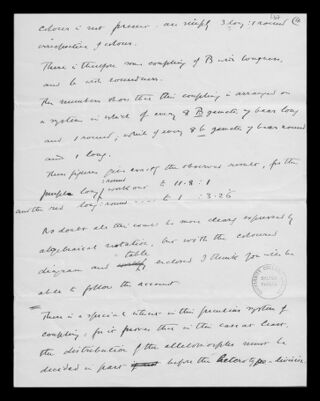 colour is not present, are simply 3 long : 1 round
irrespective of colour.
There is therefore some coupling of B with longness,
and b with roundness.
The numbers show that this coupling is arranged on
a system in which of every 8 B gametes 7 bear long
and 1 round, while of every 8 b gametes 7 bear round
and 1 long.
These figures give exactly the observed result, for the
purple long : round work out to 11.8 : 1
and the red long : round to 1 : 3.26
No doubt all this could be more clearly expressed by
algebraical notation, but with the coloured
diagram and table enclosed I think you will be
able to follow the account
There is a special interest in this peculiar system of
coupling, for it proves that in this case at least,
the distribution of the allelomorphs must be
decided in part before the heterotype-division